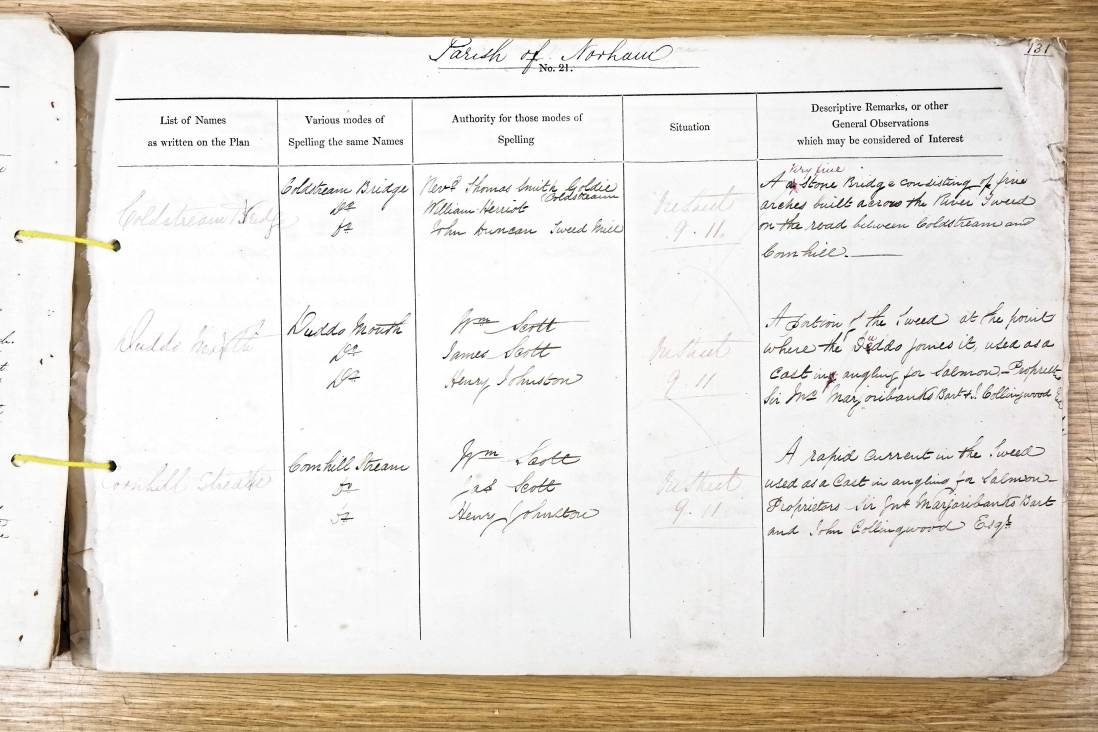 Parish of Norham
No. 21.
131
List of Names
as written on the Plan
Various modes of
Spelling the same Names
Authority for those modes of
Spelling
Situation
Descriptive Remarks, or other
General Observations
which may be considered of Interest
Coldstream Bridge
Coldstream Bridge
Do
Do
Revd. Thomas Smith Goldie
Coldstream
William Herriot
John Duncan Tweed Mill
On Sheet
9.11.
very fine
A a Stone Bridge consisting of five
arches built across the River Tweed
on the road between Coldstream and
Cornhill.
Dudds Mouth
Dudds Mouth
Do
Do
Wm Scott
James Scott
Henry Johnston
On Sheet
9.11
A portion of the Tweed at the point
where the Dudds joines it, used as a
Cast in angling for Salmon. Propriet
Sir Jno. Marjoribanks Bart & J. Collingwood Esq
Cornhill Stream
Cornhill Stream
Do
Do
Wm Scott
Jas Scott
Henry Johnston
On Sheet
9.11
A rapid Current in the Tweed
used as a Cast in angling for Salmon
Proprietors Sir Jno. Marjoribanks Bart
and John Collingwood Esqr.